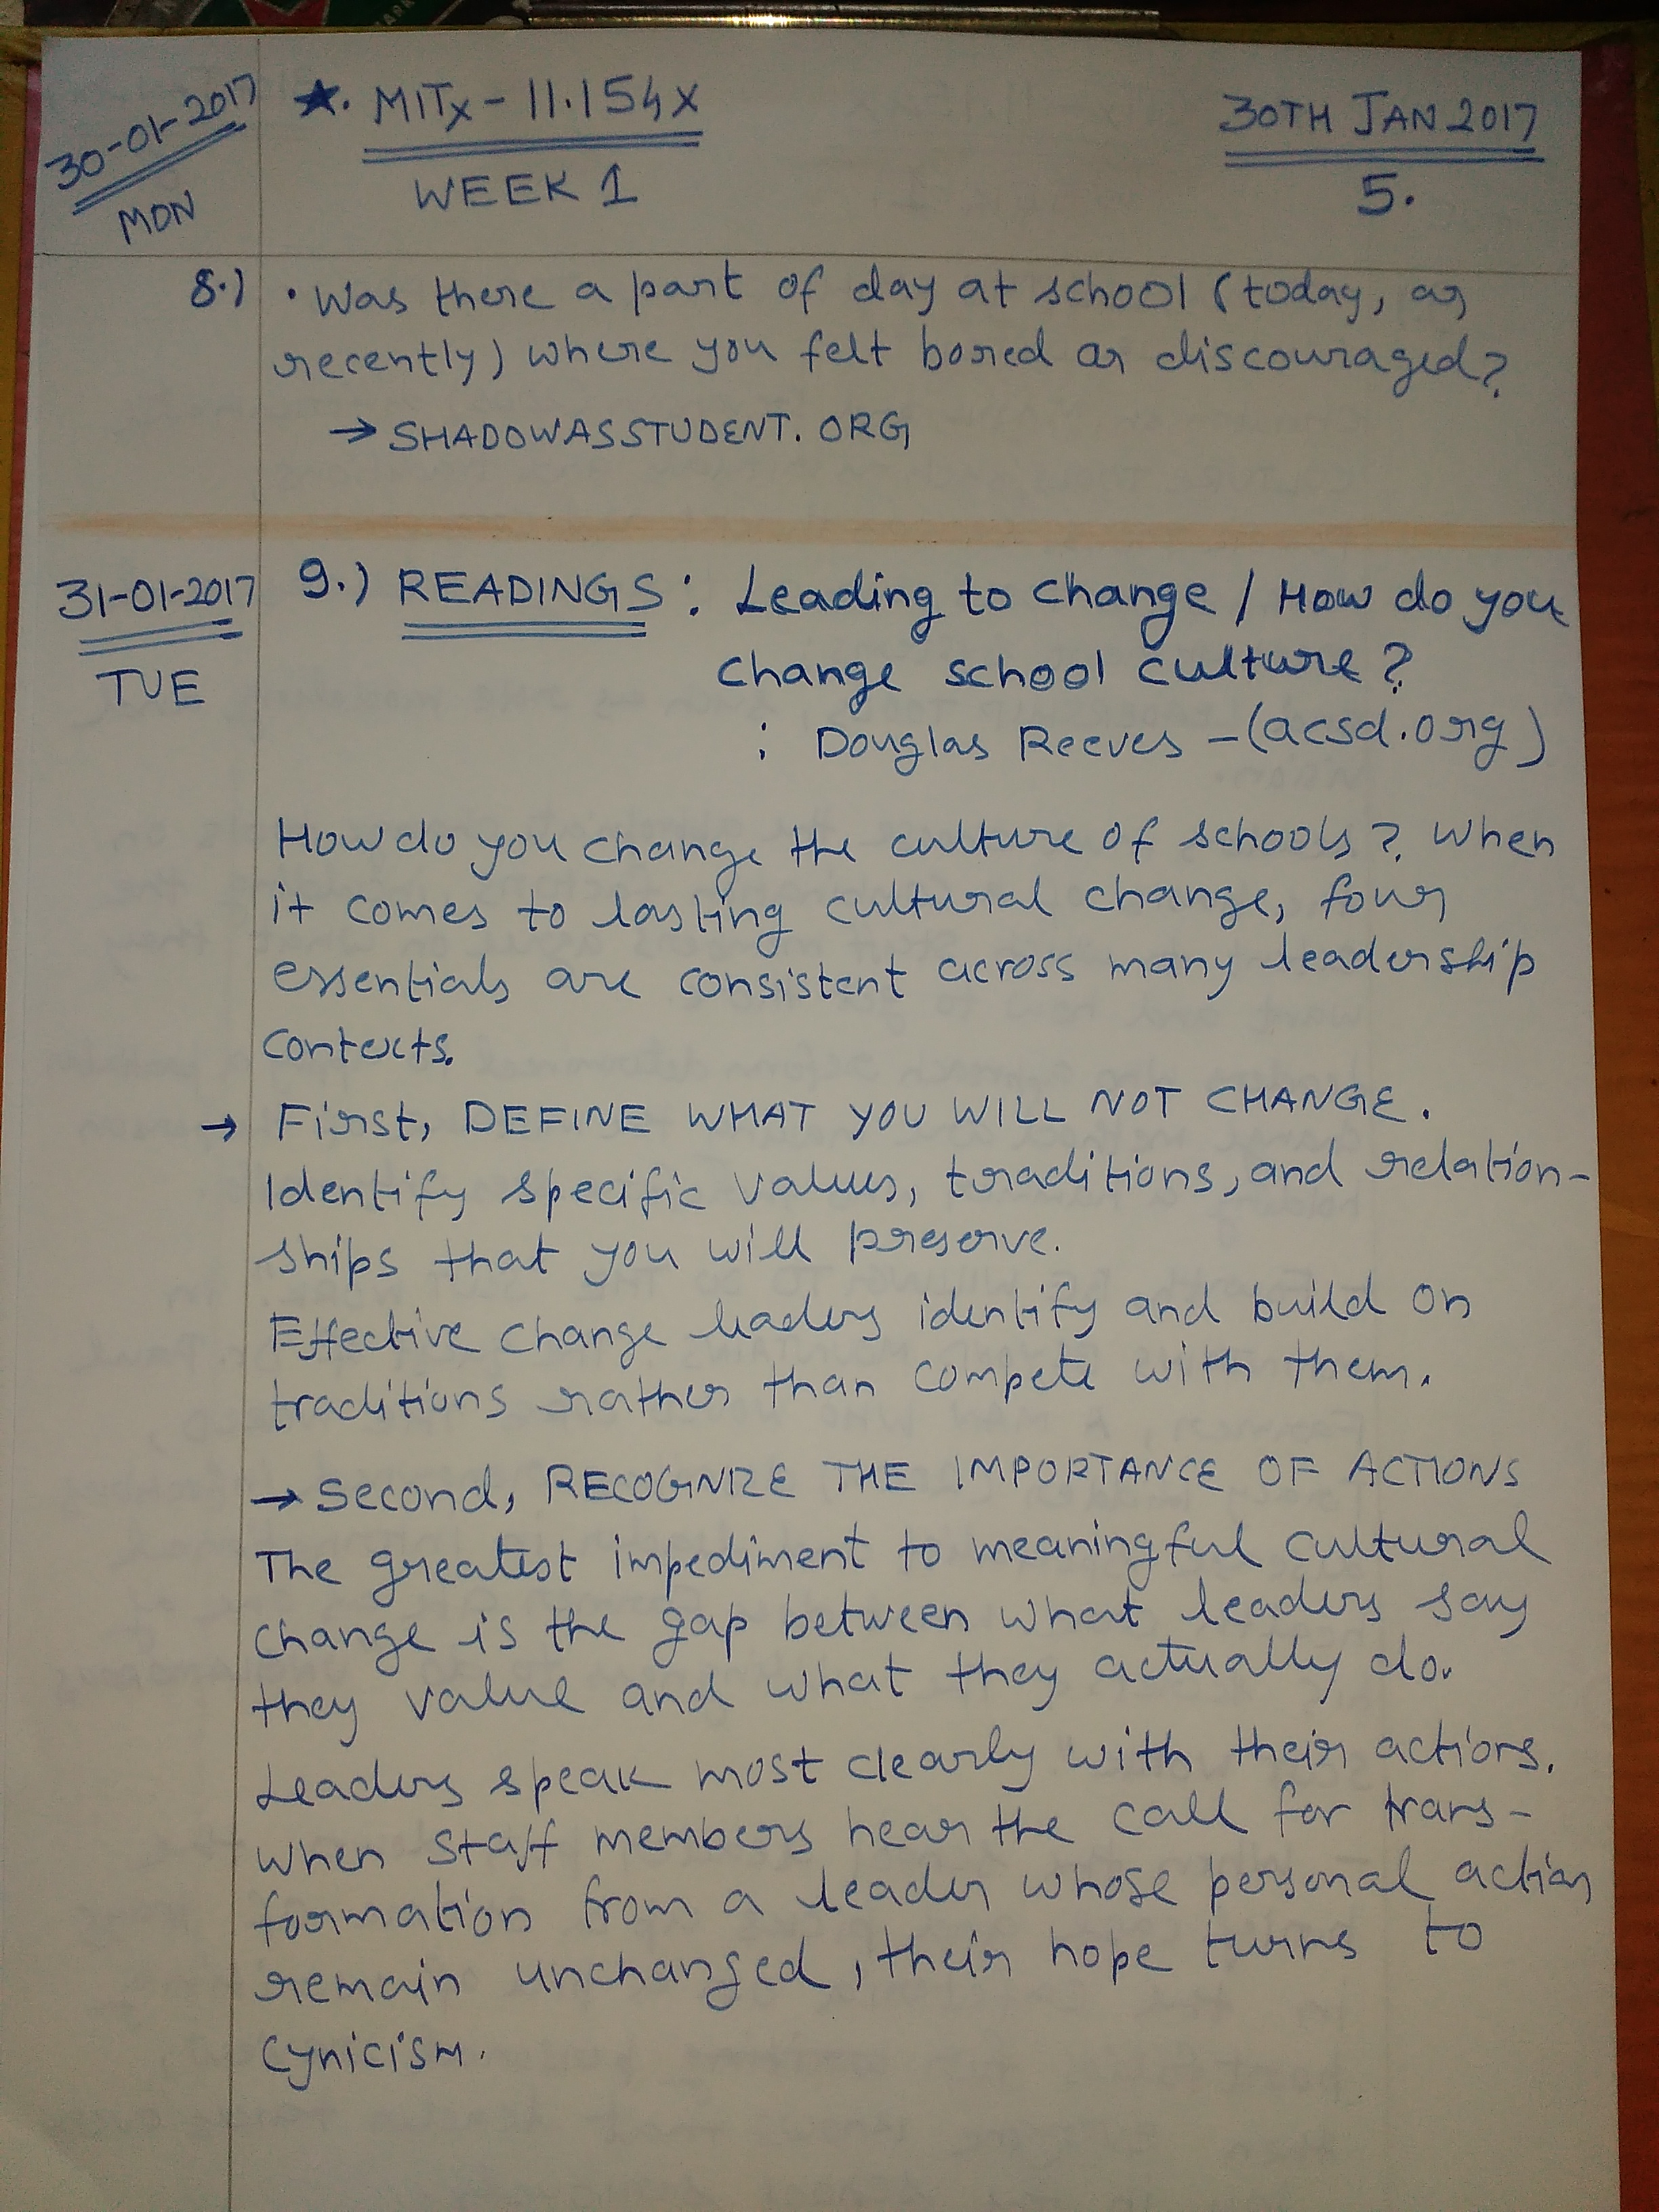 30-01-2017
MON
★. MITx - 11.154x
WEEK 1
30TH JAN 2017
5.
8.) • Was there a part of day at school (today, or
recently) where you felt bored or discouraged?
→ SHADOWASSTUDENT.ORG
31-01-2017
TUE
9.) READINGS: Leading to change / How do you
change school culture?
: Douglas Reeves - (acsd.org)
How do you change the culture of schools? When
it comes to lasting cultural change, four
essentials are consistent across many leadership
contexts.
→ First, DEFINE WHAT YOU WILL NOT CHANGE.
Identify specific values, traditions, and relation-
ships that you will preserve.
Effective change leaders identify and build on
traditions rather than compete with them.
→ Second, RECOGNIZE THE IMPORTANCE OF ACTIONS
The greatest impediment to meaningful cultural
change is the gap between what leaders say
they value and what they actually do.
Leaders speak most clearly with their actions.
When staff members hear the call for trans-
formation from a leader whose personal action
remain unchanged, their hope turns to
cynicism.